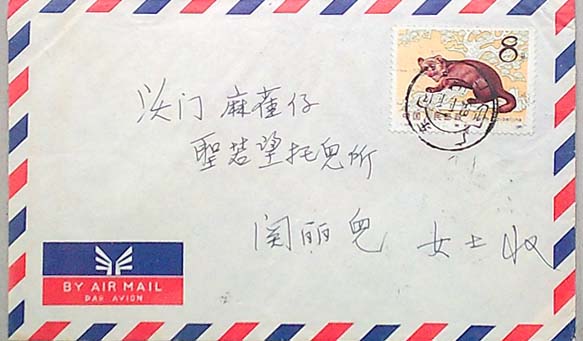 8
门 麻雀仔
聖若望托兒所
関丽兒 女士收
BY AIR MAIL
PAR AVION